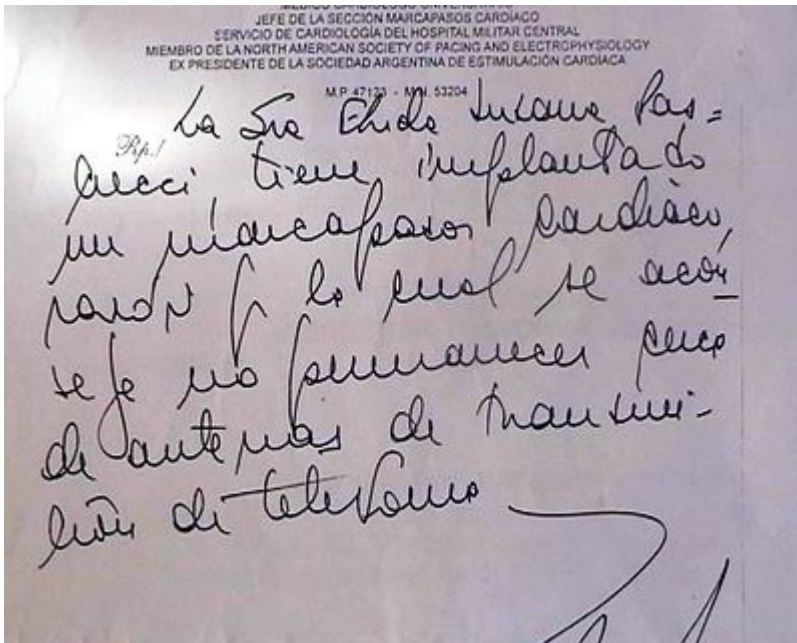 MEDICO CARDIOLOGO UNIVERSITARIO
JEFE DE LA SECCIÓN MARCAPASOS CARDÍACO
SERVICIO DE CARDIOLOGÍA DEL HOSPITAL MILITAR CENTRAL
MIEMBRO DE LA NORTH AMERICAN SOCIETY OF PACING AND ELECTROPHYSIOLOGY
EX PRESIDENTE DE LA SOCIEDAD ARGENTINA DE ESTIMULACIÓN CARDÍACA
M.P. 47123 - M.N. 53204
Rp./
La Sra Susana
tiene implantado
un marcapasos cardíaco,
razón p/ lo cual se acon
seja no permanecer cerca
de antenas de transmi-
sión de telefonía